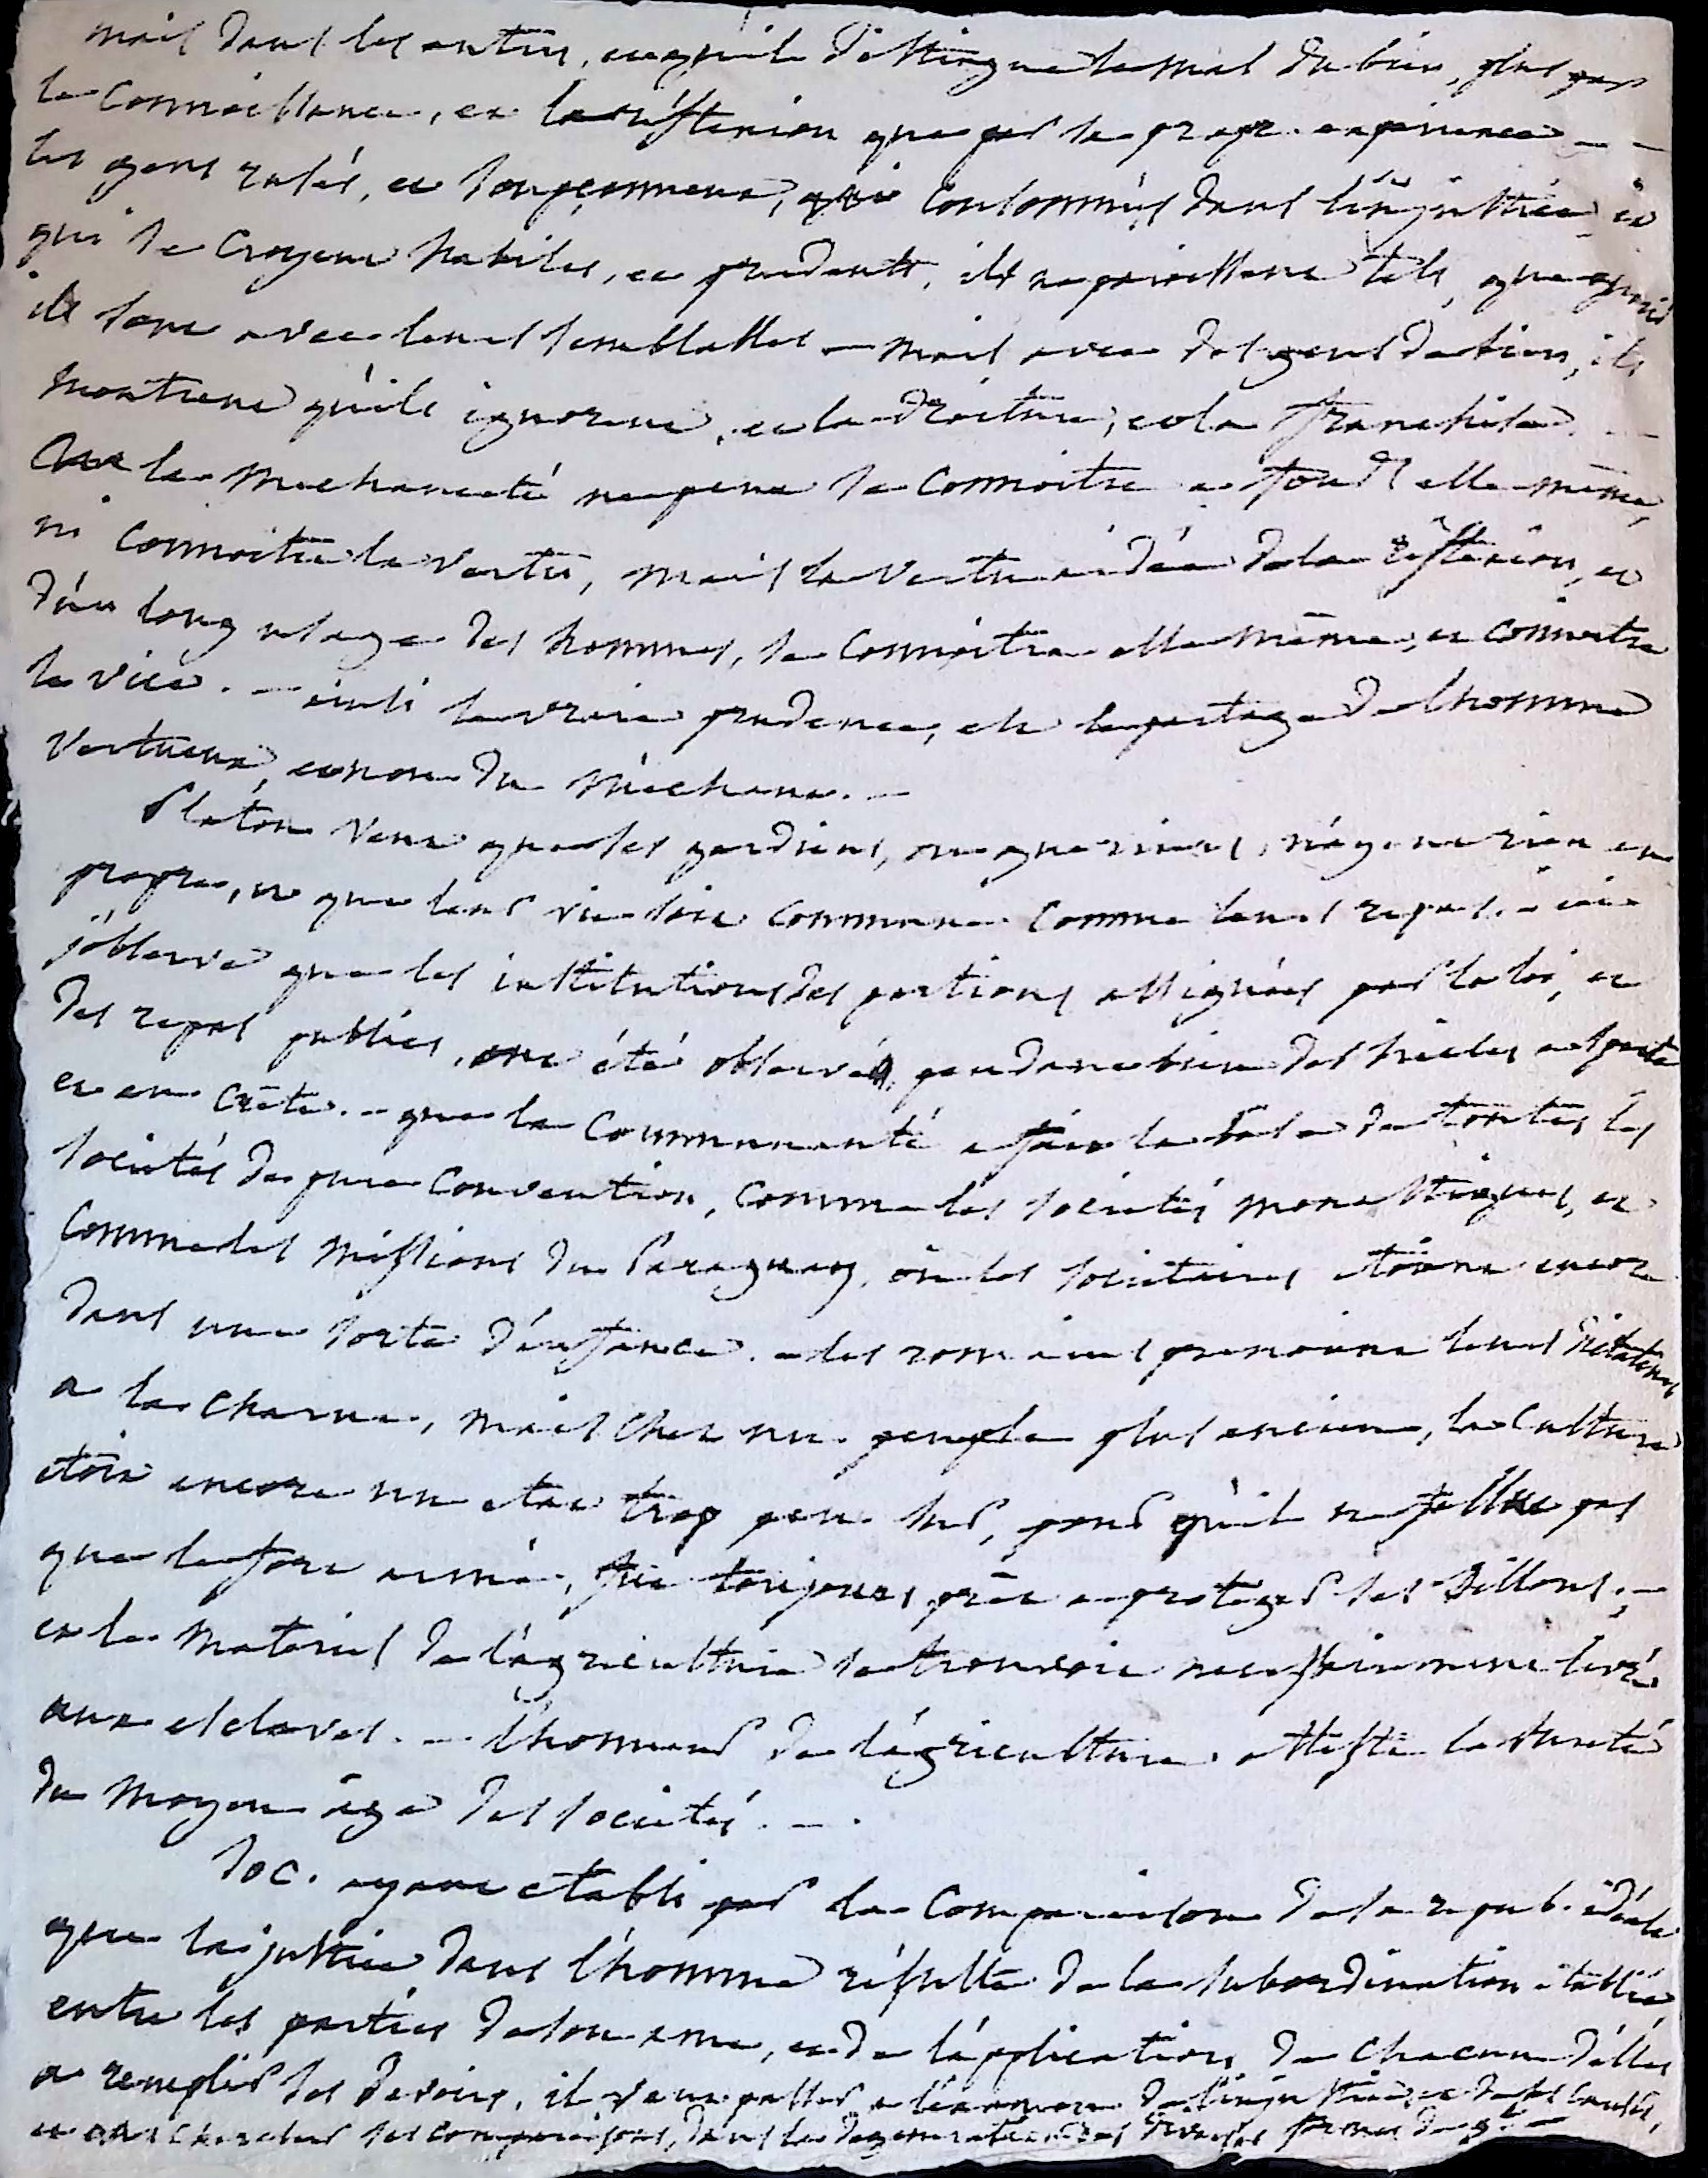 mais dans les autres, et qu'il distingue le mal du bien, plus par
la connoissance, et la réflexion que par sa propr. experience. —
les gens rusés, et soupçonneux, qui consommés dans l'injustice, et
qui se croyent habiles, et prudents, ils ne paroissent tels, que quand
ils sont avec leurs semblables — mais avec des gens de bien, ils
montrent qu'ils ignorent, et la droiture, et la franchise. —
Car la mechanceté ne peut se connoitre a fonds elle même,
ni connoitre la vertu, mais la vertu aidée de la réflexion, et
d'un long usage des hommes, se connoitra elle même, et connoitra
le vice. — ainsi la vraie prudence, est le partage de l'homme
vertueux, et non du méchant. —
Platon veut que les gardiens, ou guerriers, n'ayent rien en
propre, et que leur vie soit commune comme leurs repas. — ici
j'observe que les institutions des portions assignées par la loi, et
des repas publics, ont été observées, pendant bien des siecles a Sparte
et en Crète. — que la communauté a fait la base de toutes les
sociétés de pure convention, comme les sociétés monastiques, et
comme des missions du Paraguay, où les societaires etoient encore
dans une sorte d'enfance. — les romains prenoient leurs dictateurs
a la charue, mais chez un peuple plus ancien, la culture
etoit encore un etat trop peu sur, pour qu'il ne fallut pas
que la force armée, fut toujours prête a proteger les sillons; —
et le materiel de l'agriculture se trouvoit necessairement livré
aux esclaves. — l'honneur de l'agriculture atteste la sureté
du moyen âge des sociétés. —
Soc. ayant etabli par la comparaison de la repub. idéale
que la justice dans l'homme résulte de la subordination établie
entre les parties de son ame, et de l'application de chacune d'elles
a remplir ses devoirs, il veut passer a l'examen de l'injustice et de ses causes,
et en chercher ses comparaisons, dans la degeneration des diverses formes de gt. —